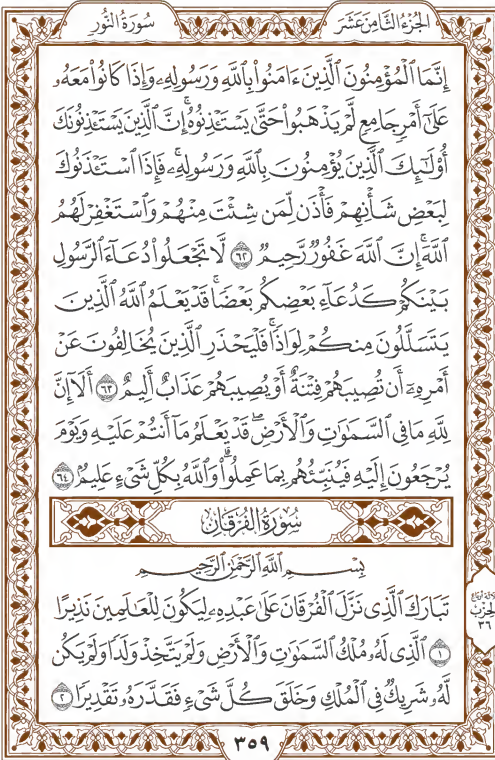 الجزء الثامن عشر
سورة النور
إِنَّمَا ٱلْمُؤْمِنُونَ ٱلَّذِينَ ءَامَنُوا۟ بِٱللَّهِ وَرَسُولِهِۦ وَإِذَا كَانُوا۟ مَعَهُۥ
عَلَىٰٓ أَمْرٍ جَامِعٍ لَّمْ يَذْهَبُوا۟ حَتَّىٰ يَسْتَـْٔذِنُوهُ ۚ إِنَّ ٱلَّذِينَ يَسْتَـْٔذِنُونَكَ
أُو۟لَـٰٓئِكَ ٱلَّذِينَ يُؤْمِنُونَ بِٱللَّهِ وَرَسُولِهِۦ ۚ فَإِذَا ٱسْتَـْٔذَنُوكَ
لِبَعْضِ شَأْنِهِمْ فَأْذَن لِّمَن شِئْتَ مِنْهُمْ وَٱسْتَغْفِرْ لَهُمُ
ٱللَّهَ ۚ إِنَّ ٱللَّهَ غَفُورٌ رَّحِيمٌ ٦٢ لَّا تَجْعَلُوا۟ دُعَآءَ ٱلرَّسُولِ
بَيْنَكُمْ كَدُعَآءِ بَعْضِكُم بَعْضًا ۚ قَدْ يَعْلَمُ ٱللَّهُ ٱلَّذِينَ
يَتَسَلَّلُونَ مِنكُمْ لِوَاذًا ۚ فَلْيَحْذَرِ ٱلَّذِينَ يُخَالِفُونَ عَنْ
أَمْرِهِۦٓ أَن تُصِيبَهُمْ فِتْنَةٌ أَوْ يُصِيبَهُمْ عَذَابٌ أَلِيمٌ ٦٣ أَلَآ إِنَّ
لِلَّهِ مَا فِى ٱلسَّمَـٰوَٰتِ وَٱلْأَرْضِ ۖ قَدْ يَعْلَمُ مَآ أَنتُمْ عَلَيْهِ وَيَوْمَ
يُرْجَعُونَ إِلَيْهِ فَيُنَبِّئُهُم بِمَا عَمِلُوا۟ ۗ وَٱللَّهُ بِكُلِّ شَىْءٍ عَلِيمٌۢ ٦٤
سُورَةُ الْفُرْقَانِ
بِسْمِ ٱللَّهِ ٱلرَّحْمَـٰنِ ٱلرَّحِيمِ
تَبَارَكَ ٱلَّذِى نَزَّلَ ٱلْفُرْقَانَ عَلَىٰ عَبْدِهِۦ لِيَكُونَ لِلْعَـٰلَمِينَ نَذِيرًا
١ ٱلَّذِى لَهُۥ مُلْكُ ٱلسَّمَـٰوَٰتِ وَٱلْأَرْضِ وَلَمْ يَتَّخِذْ وَلَدًا وَلَمْ يَكُن
لَّهُۥ شَرِيكٌ فِى ٱلْمُلْكِ وَخَلَقَ كُلَّ شَىْءٍ فَقَدَّرَهُۥ تَقْدِيرًا ٢
الحزب
٣٦
٣٥٩